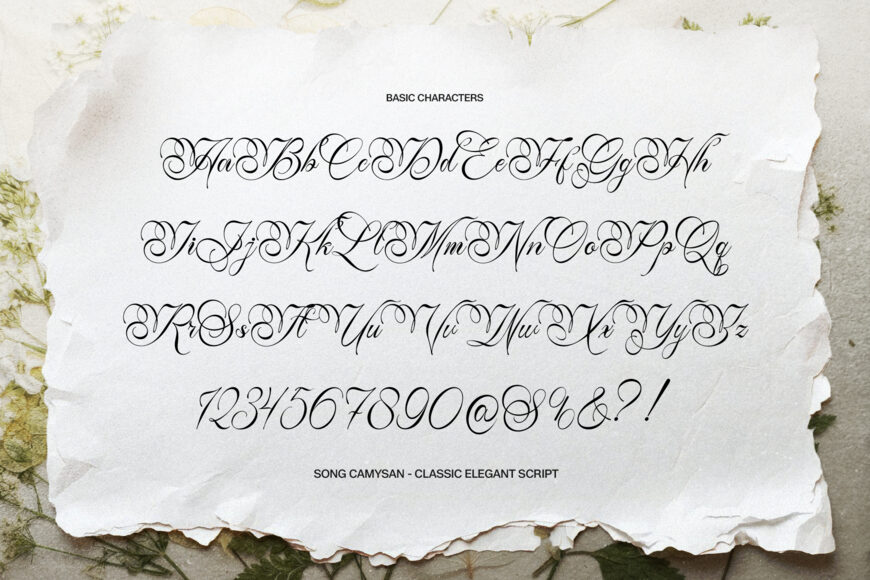 BASIC CHARACTERS
AaBbCcDdEeFfGgHh
IiJjKkLlMmNnOoPpQq
RrSsTtUuVvWwXxYyZz
1234567890@$%&?!
SONG CAMYSAN - CLASSIC ELEGANT SCRIPT